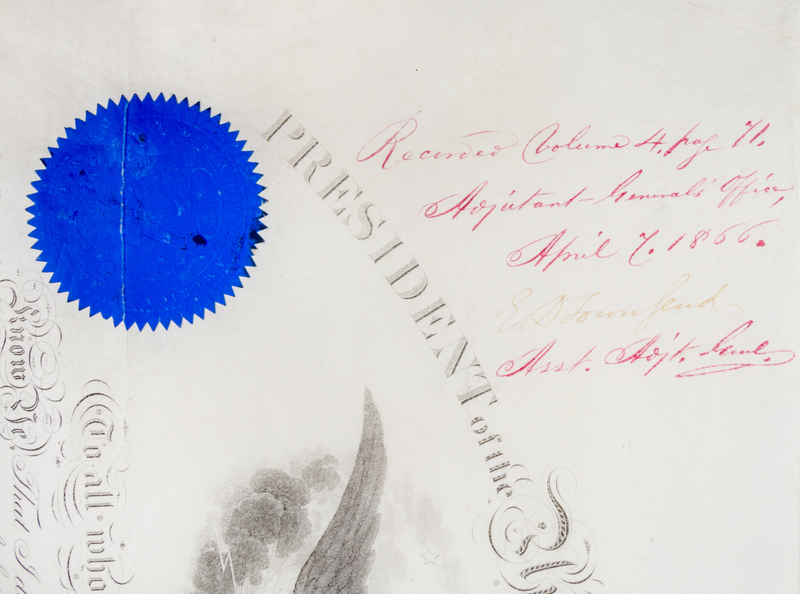 Recorded Volume 4. page 71.
Adjutant Generals' Office,
April 7. 1866.
E D Townsend
Asst. Adjt. Genl.
PRESIDENT of the
To all who
Know Ye,
That I